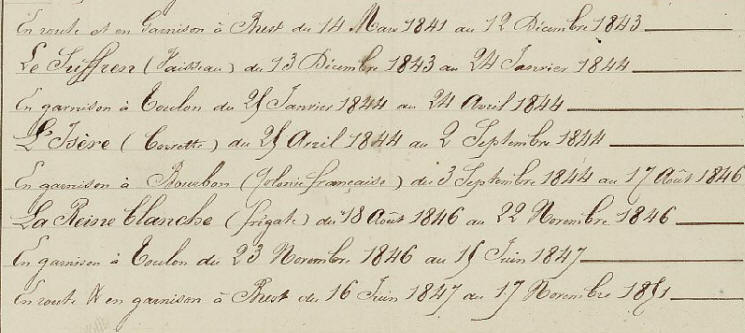 En route et en Garnison à Brest du 14 Mars 1841 au 12 Décembre 1843
Le Suffren (Vaisseau) du 13 Décembre 1843 au 24 Janvier 1844
En garnison à Toulon du 25 Janvier 1844 au 24 Avril 1844
L'Isère (Corvette) du 25 Avril 1844 au 2 Septembre 1844
En garnison à Bourbon (Colonie française) du 3 Septembre 1844 au 17 Août 1846
La Reine blanche (frigate) du 18 Août 1846 au 22 Novembre 1846
En garnison à Toulon du 23 Novembre 1846 au 15 Juin 1847
En route & en garnison à Brest du 16 Juin 1847 au 17 Novembre 1851